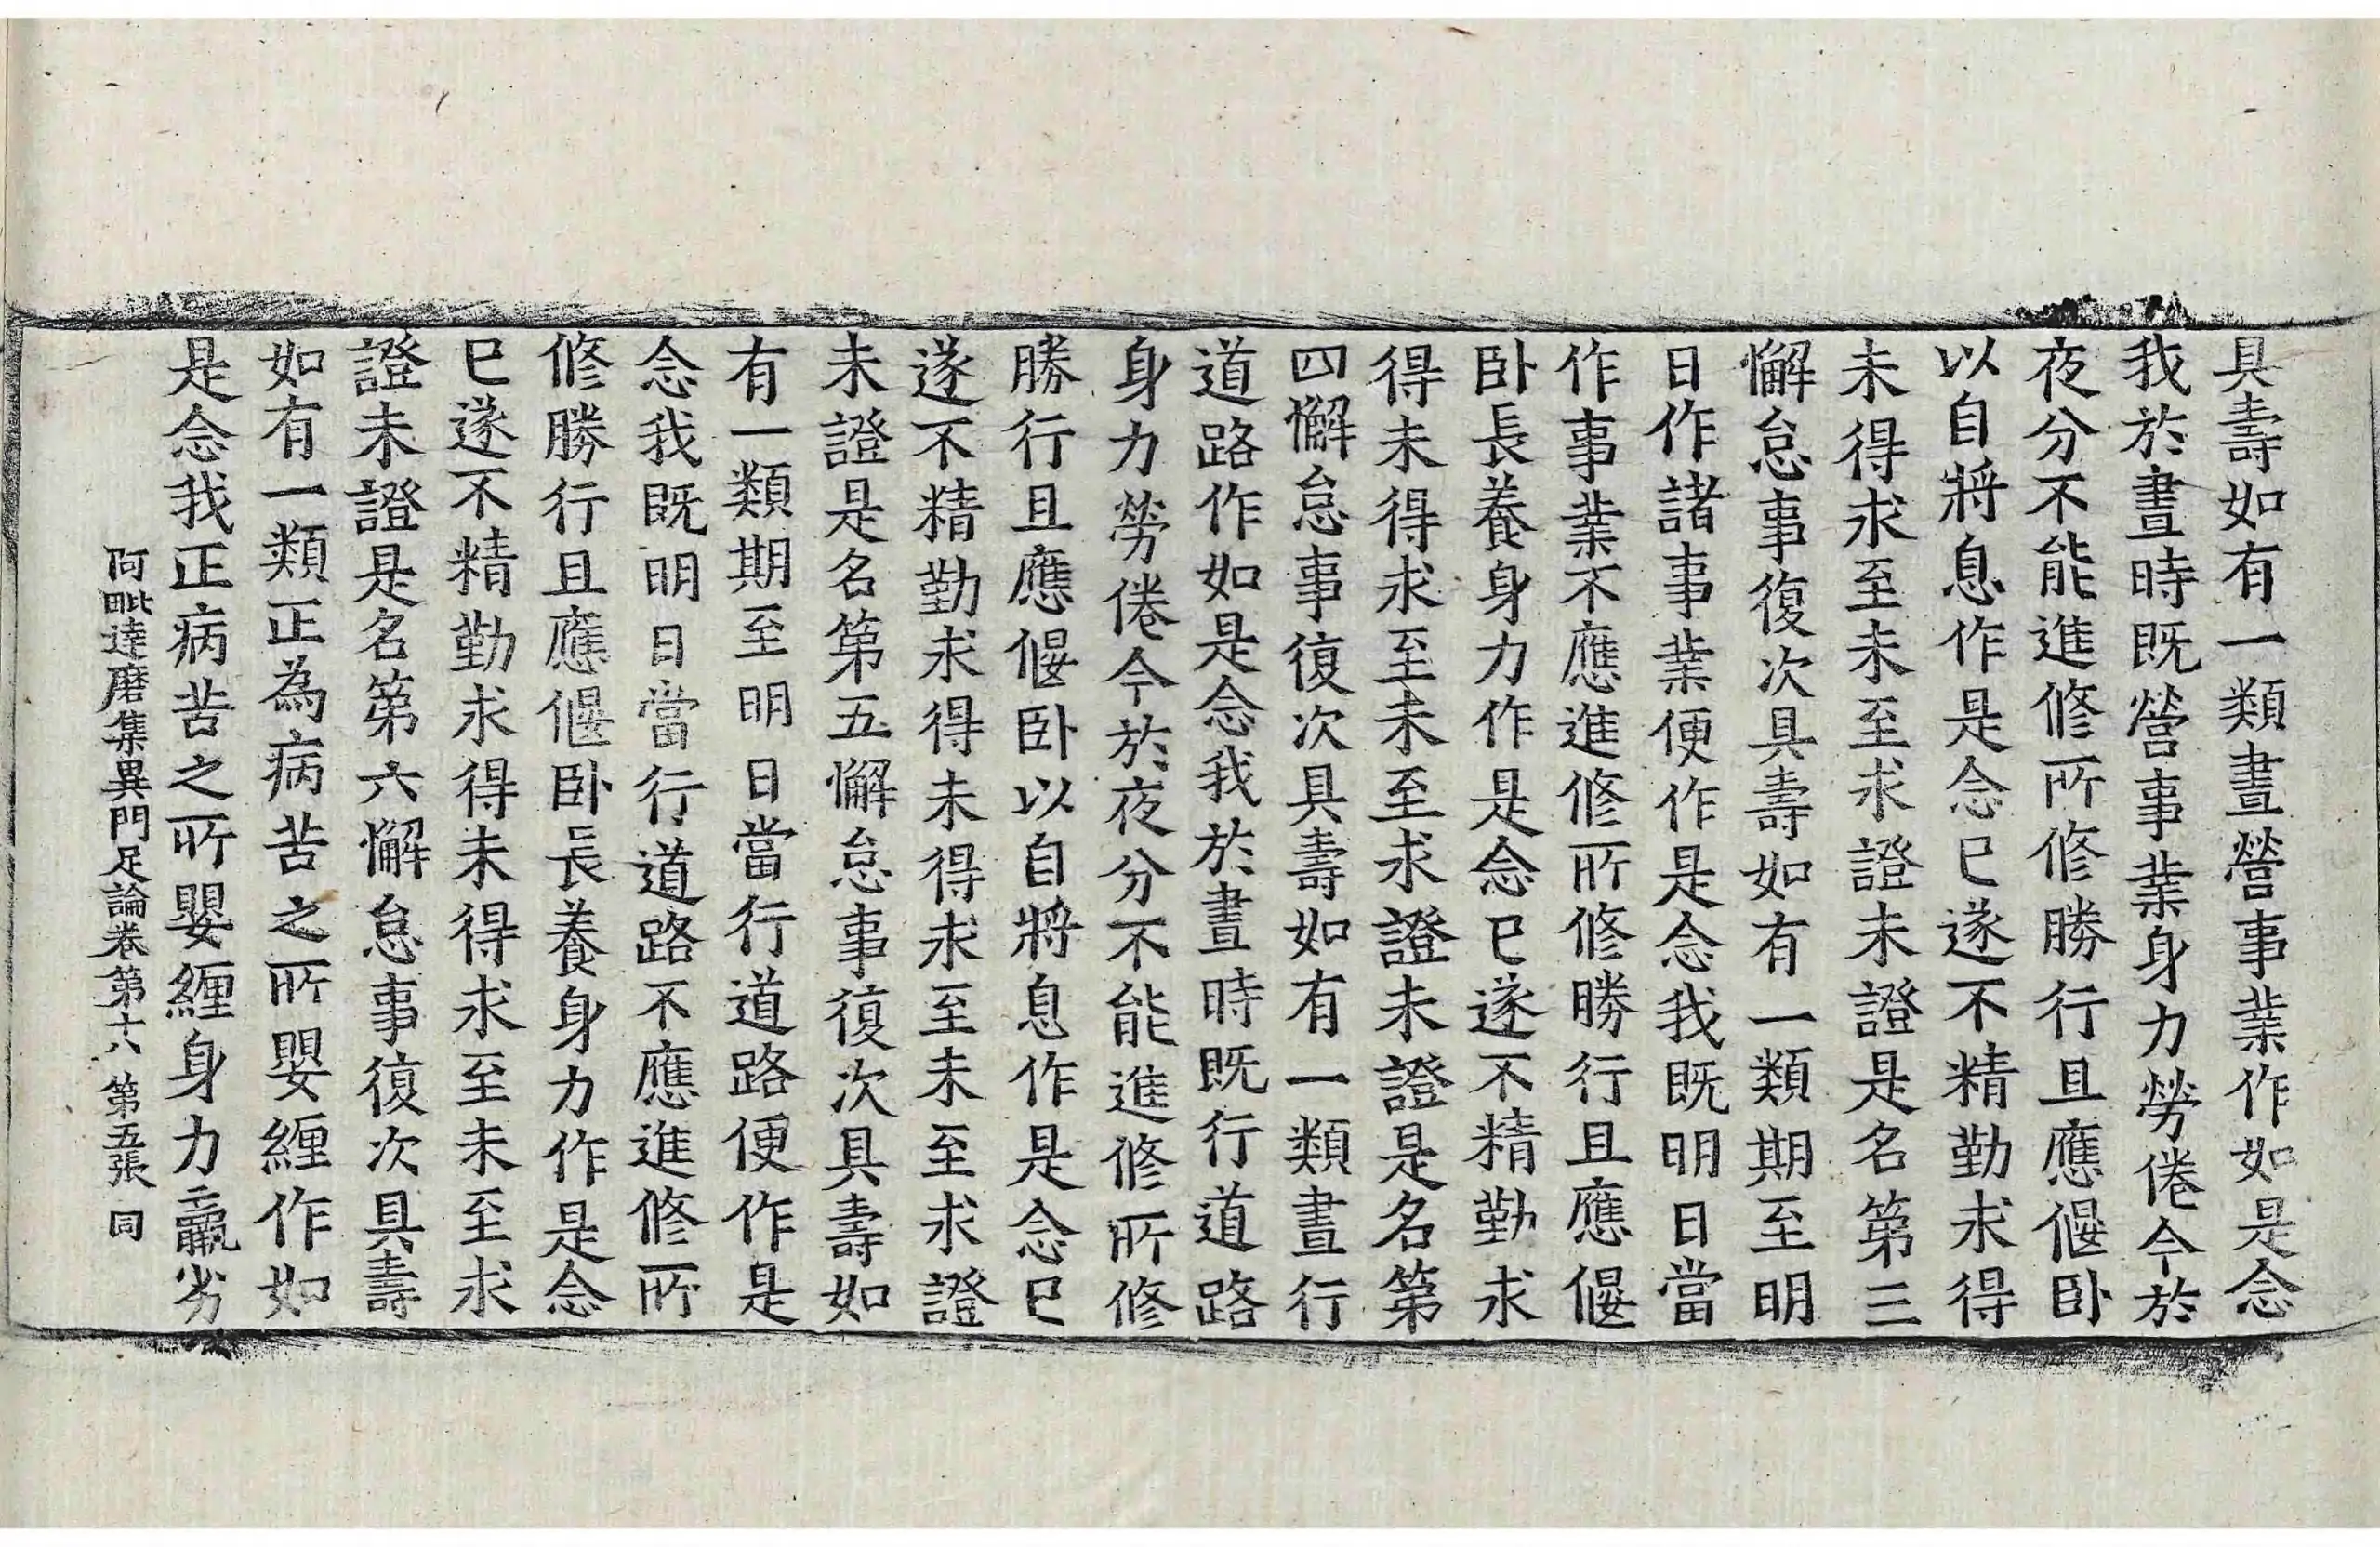 具壽如有一類晝營事業作如是念
我於晝時既營事業身力勞倦今於
夜分不能進修所修勝行且應偃卧
以自將息作是念已遂不精勤求得
未得求至未至求證未證是名第三
懈怠事復次具壽如有一類期至明
日作諸事業便作是念我既明日當
作事業不應進修所修勝行且應偃
卧長養身力作是念已遂不精勤求
得未得求至未至求證未證是名第
四懈怠事復次具壽如有一類晝行
道路作如是念我於晝時既行道路
身力勞倦今於夜分不能進修所修
勝行且應偃卧以自將息作是念已
遂不精勤求得未得求至未至求證
未證是名第五懈怠事復次具壽如
有一類期至明日當行道路便作是
念我既明日當行道路不應進修所
修勝行且應偃卧長養身力作是念
已遂不精勤求得未得求至未至求
證未證是名第六懈怠事復次具壽
如有一類正為病苦之所嬰纏作如
是念我正病苦之所嬰纏身力羸劣
阿毗達磨集異門足論卷第十八 第五張 同